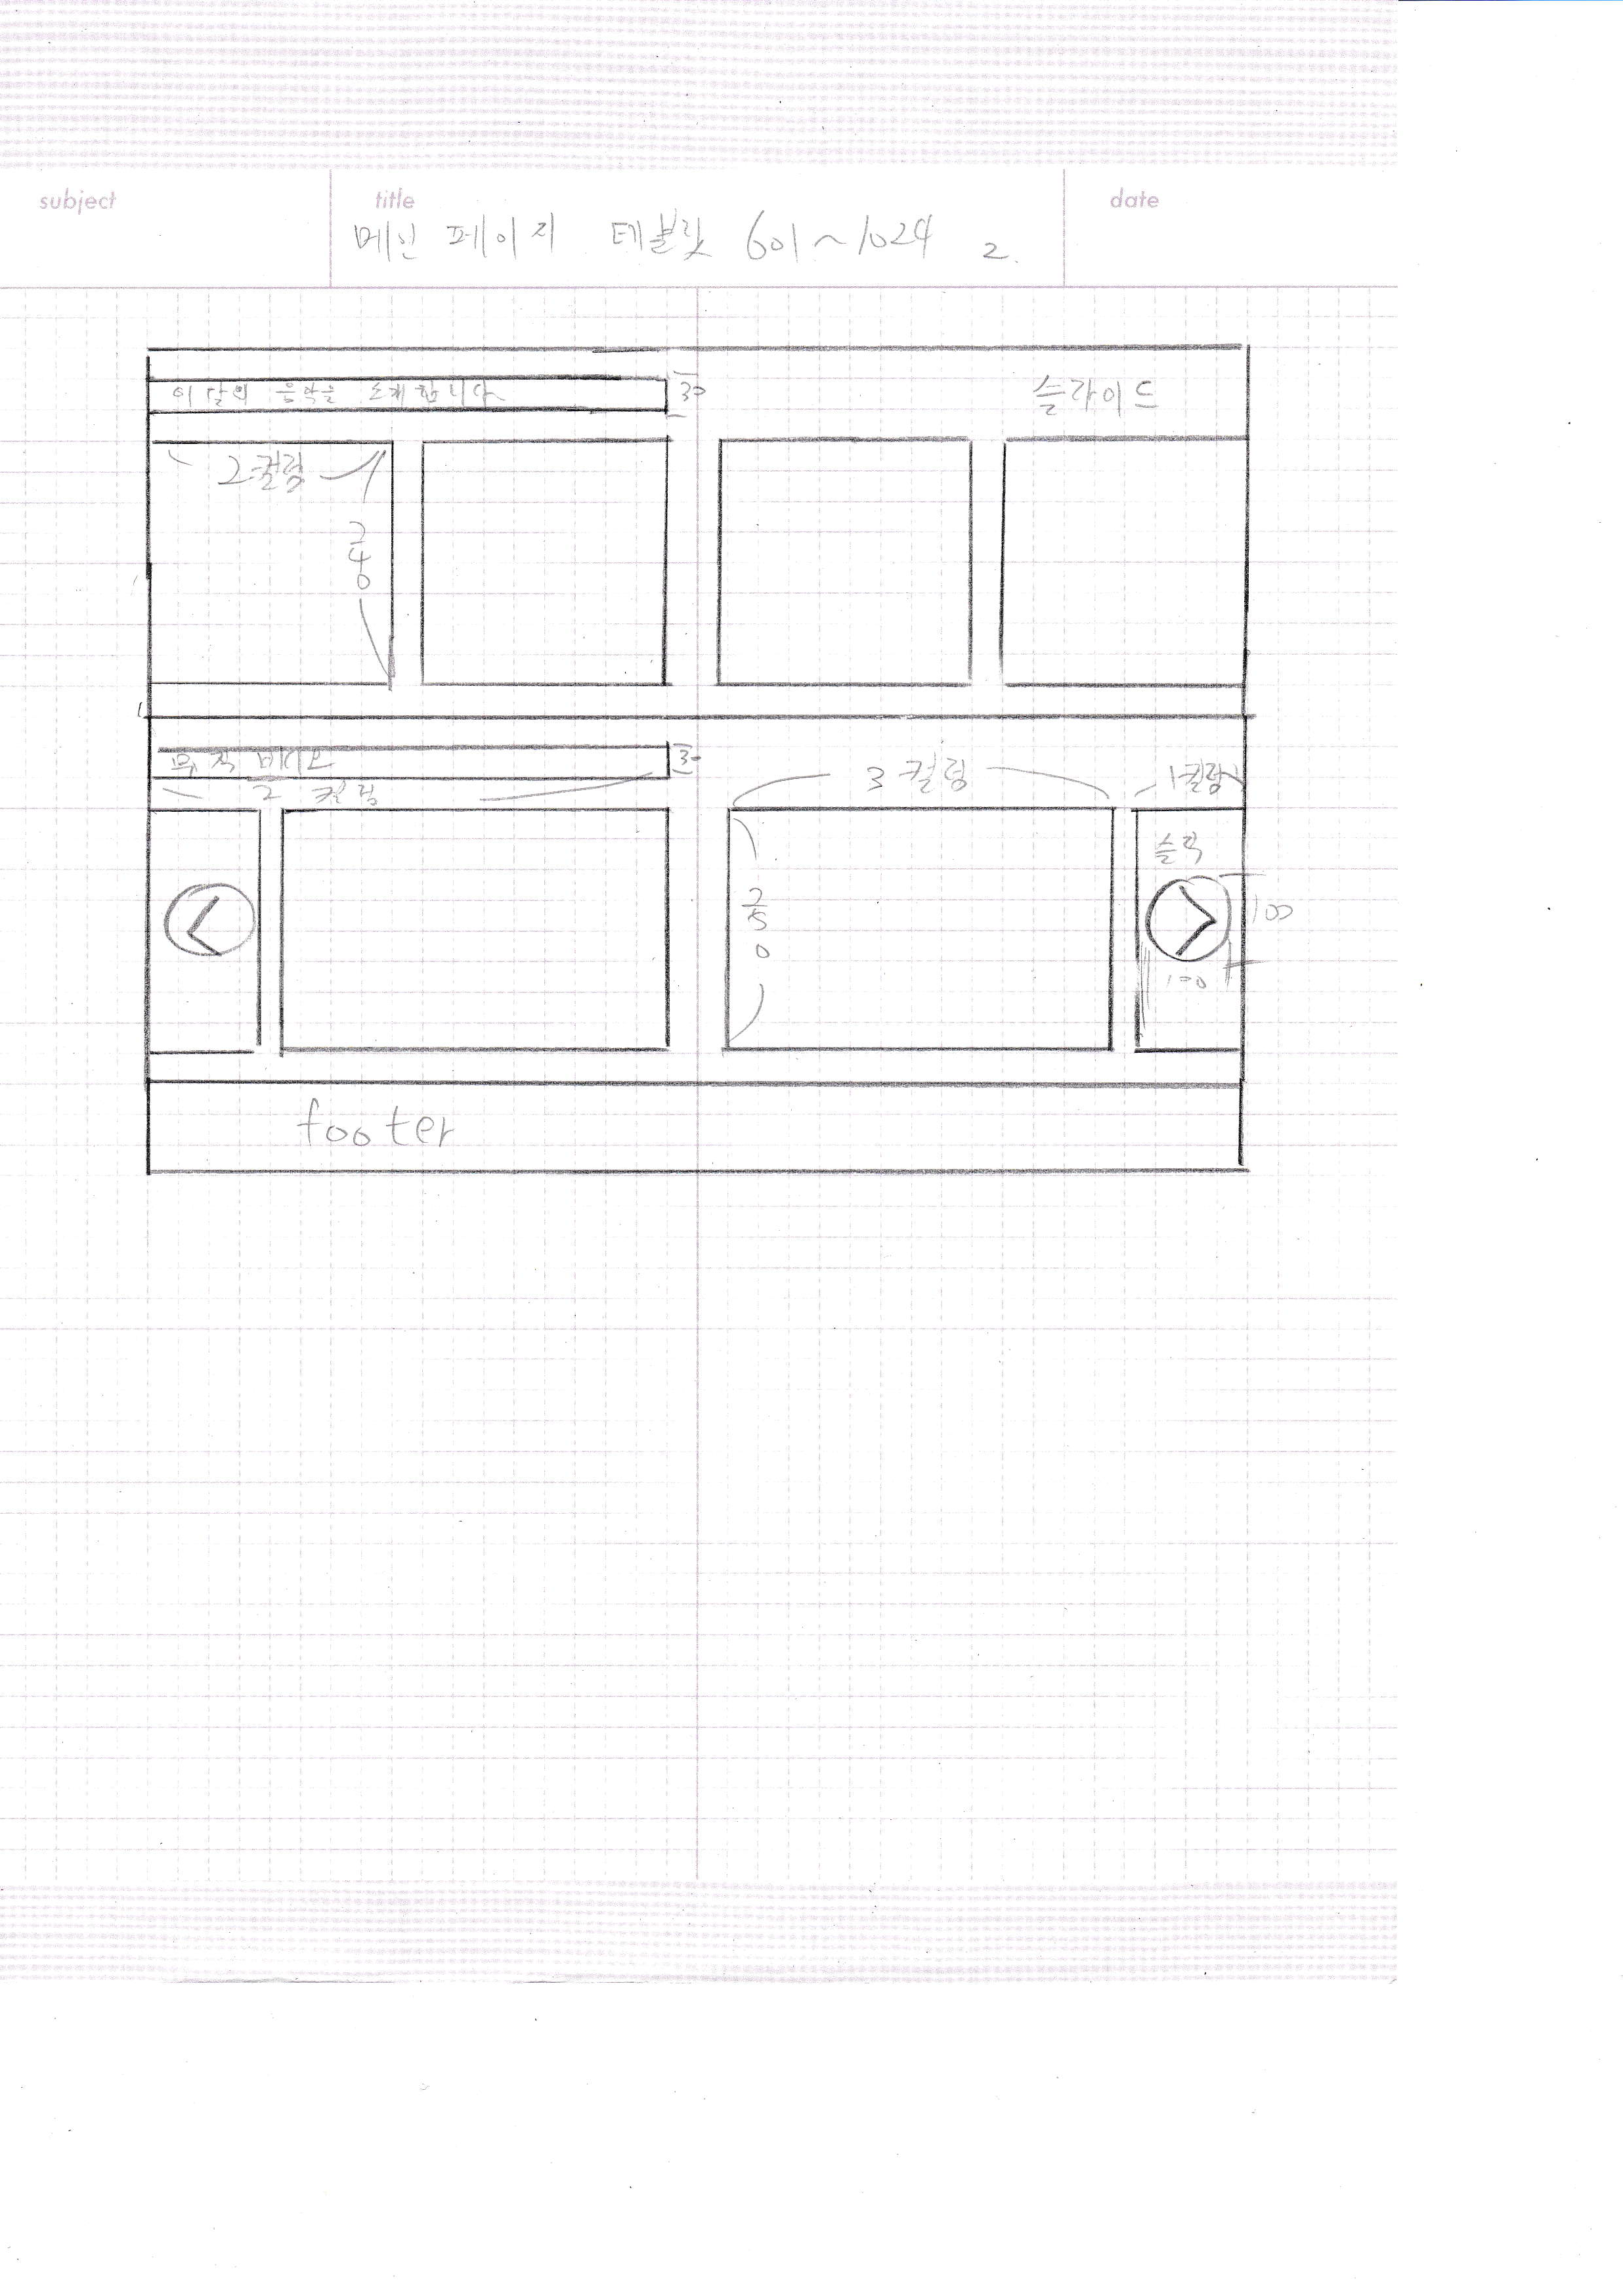 subject
title
date
메인 페이지 테블릿 601~1024 2.
이달의 음악을 소개합니다
30
슬라이드
2컬럼
240
뮤직비디오
30
2 컬럼
3 컬럼
1컬럼
250
슬릭
100
100
footer